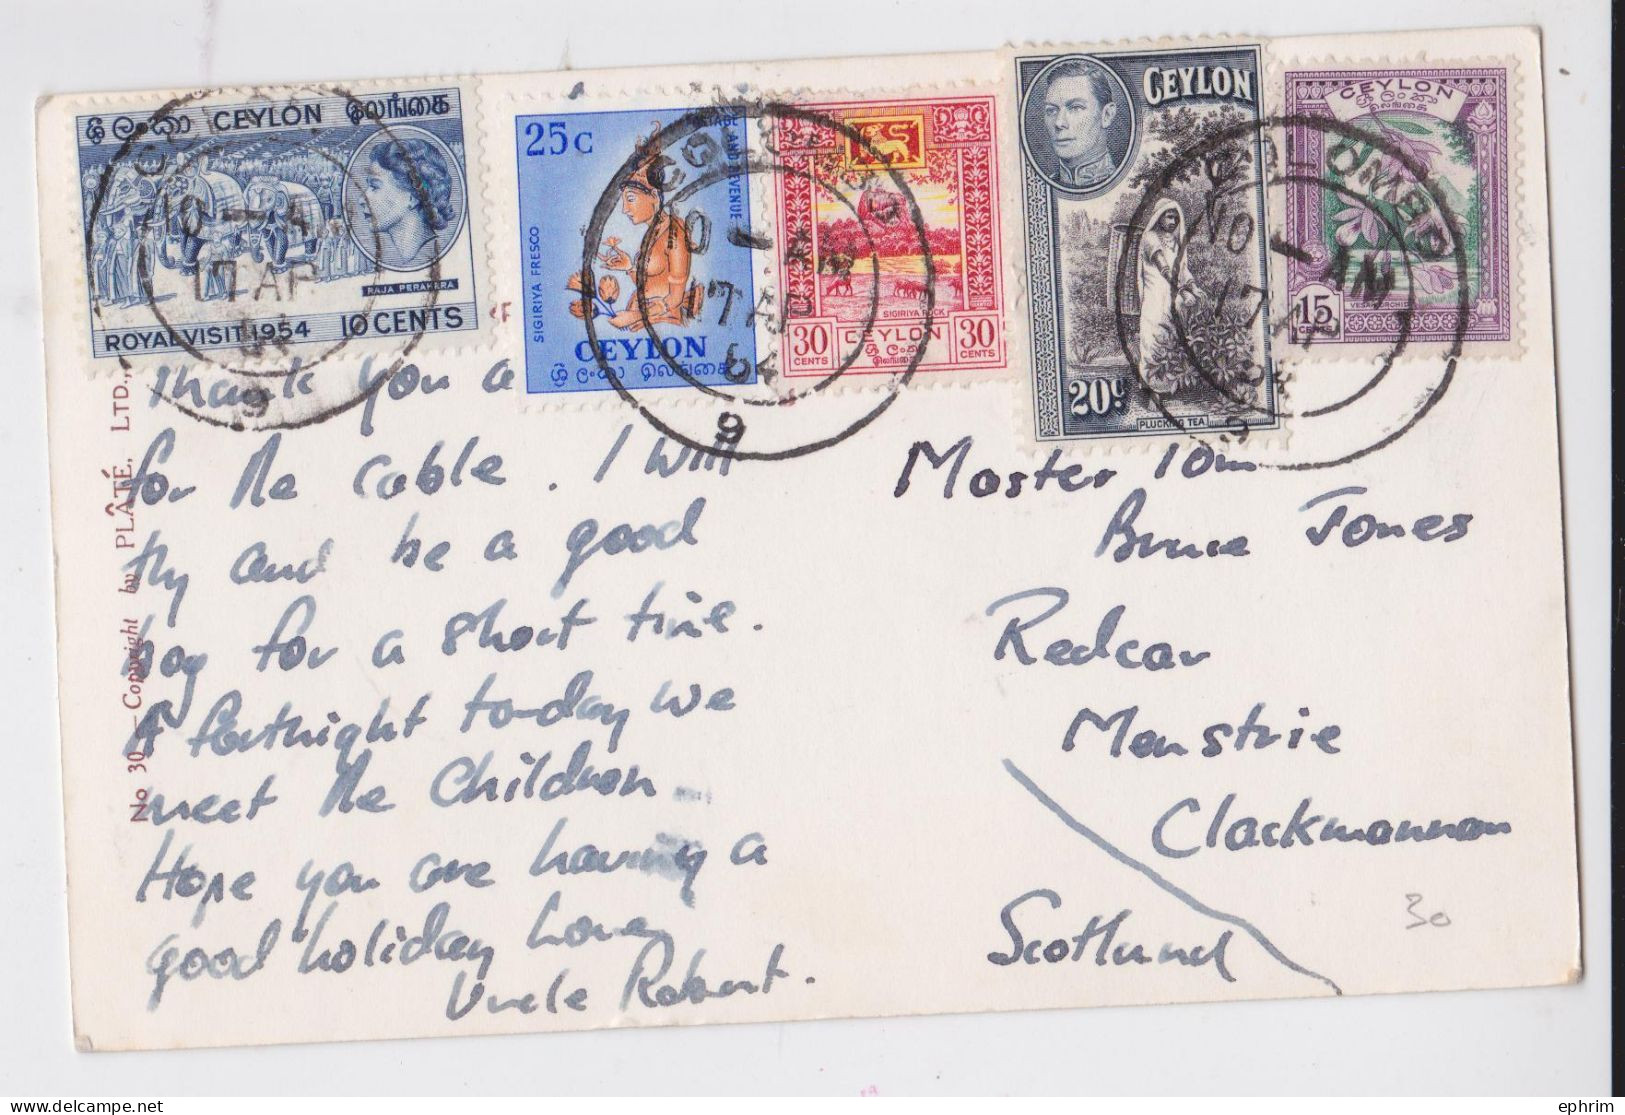 ශ්‍රී ලංකා CEYLON இலங்கை
RAJA PERAHARA
ROYAL VISIT 1954 10 CENTS
25 C
POSTAGE AND REVENUE
SIGIRIYA FRESCO
CEYLON
ශ්‍රී ලංකා இலங்கை
SIGIRIYA ROCK
30 CENTS CEYLON 30 CENTS
ලංකා
இலங்கை
CEYLON
20c
PLUCKING TEA
CEYLON
ලංකා
இலங்கை
15 CENTS
VESAK ORCHID
10 - AM
17 AP
54
9
COLOMBO
10 - AM
17 AP
54
9
COLOMBO
10 - AM
17 AP
54
9
No 30 - Copyright by PLÂTÉ, LTD.,
Thank you a
for the cable. I will
try and be a good
boy for a short time.
A fortnight to-day we
meet the Children
Hope you are having a
good holiday love
Uncle Robert.
Master Tom
Bruce Jones
Redcar
Menstrie
Clackmannan
Scotland
30
ephrim